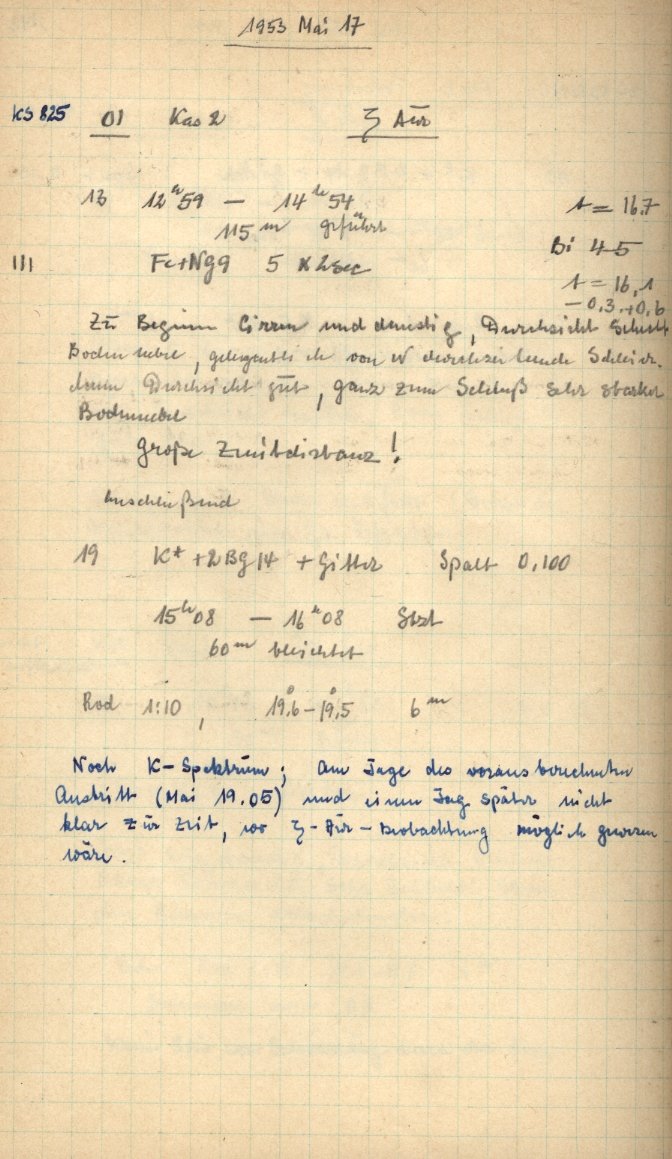 1953 Mai 17
KS 825 01 Kas 2 ζ Aur
13 12h 59 — 14h 54 t = 16,7
115m geführt Bi 45
III Fe+Ng9 5 x 2sec t = 16,1
-0,3 +0,6
Zu Beginn Cirren und dunstig, Durchsicht
Bodennebel, gelegentlich von W durchziehende
dann Durchsicht gut, ganz zum Schluß sehr starker
Bodennebel
große Zenitdistanz!
Anschließend
19 K* + 2BG14 + Gitter Spalt 0,100
15h 08 — 16h 08
60m belichtet
Rod 1:10, 19°,6 — 19°,5 6m
Noch K-Spektrum; am Tage des vorausberechneten
Austritt (Mai 19.05) und einen Tag später nicht
klar zur Zeit, wo ζ-Aur-Beobachtung möglich gewesen
wäre.